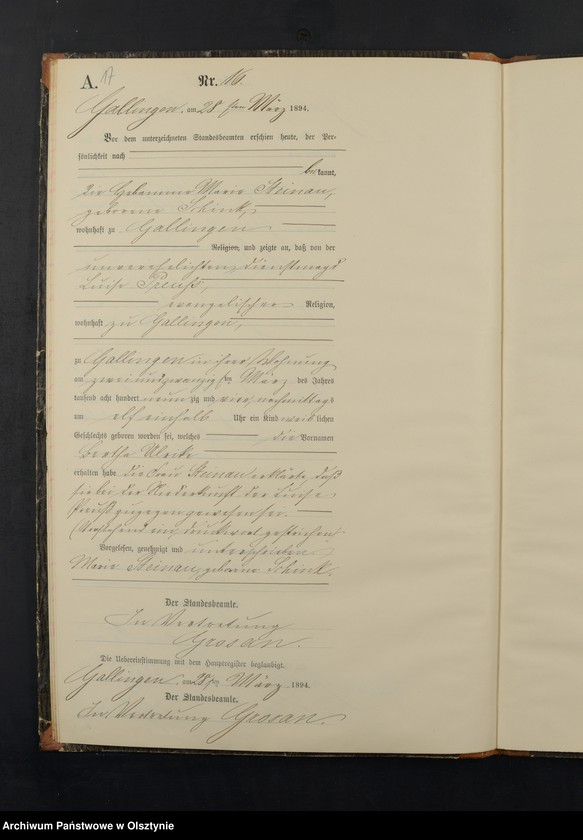 A. 17
Nr. 16.
Gallingen, am 28 ten März 1894.
Vor dem unterzeichneten Standesbeamten erschien heute, der Per-
sönlichkeit nach
bekannt,
die Hebamme Marie Steinau,
geborene Schink,
wohnhaft zu Gallingen
Religion, und zeigte an, daß von der
unverehelichten Dienstmagd
Luise Preuß,
evangelischer Religion,
wohnhaft zu Gallingen,
zu Gallingen in ihrer Wohnung
am zweiundzwanzig ten März des Jahres
tausend acht hundert neun zig und vier, nachmittags
um elf einhalb Uhr ein Kind weiblichen
Geschlechts geboren worden sei, welches die Vornamen
Bertha
erhalten habe. die Frau Steinau erklärte, daß
sie bei der Niederkunft der Luise
Preuß zugegen gewesen sei.
(Vorstehend ein Druckwort gestrichen)
Vorgelesen, genehmigt und unterschrieben
Marie Steinau, geborene Schink.
Der Standesbeamte.
In Vertretung
Grosan.
Die Uebereinstimmung mit dem Hauptregister beglaubigt.
Gallingen, am 28 ten März 1894.
Der Standesbeamte.
In Vertretung Grosan.
Archiwum Państwowe w Olsztynie